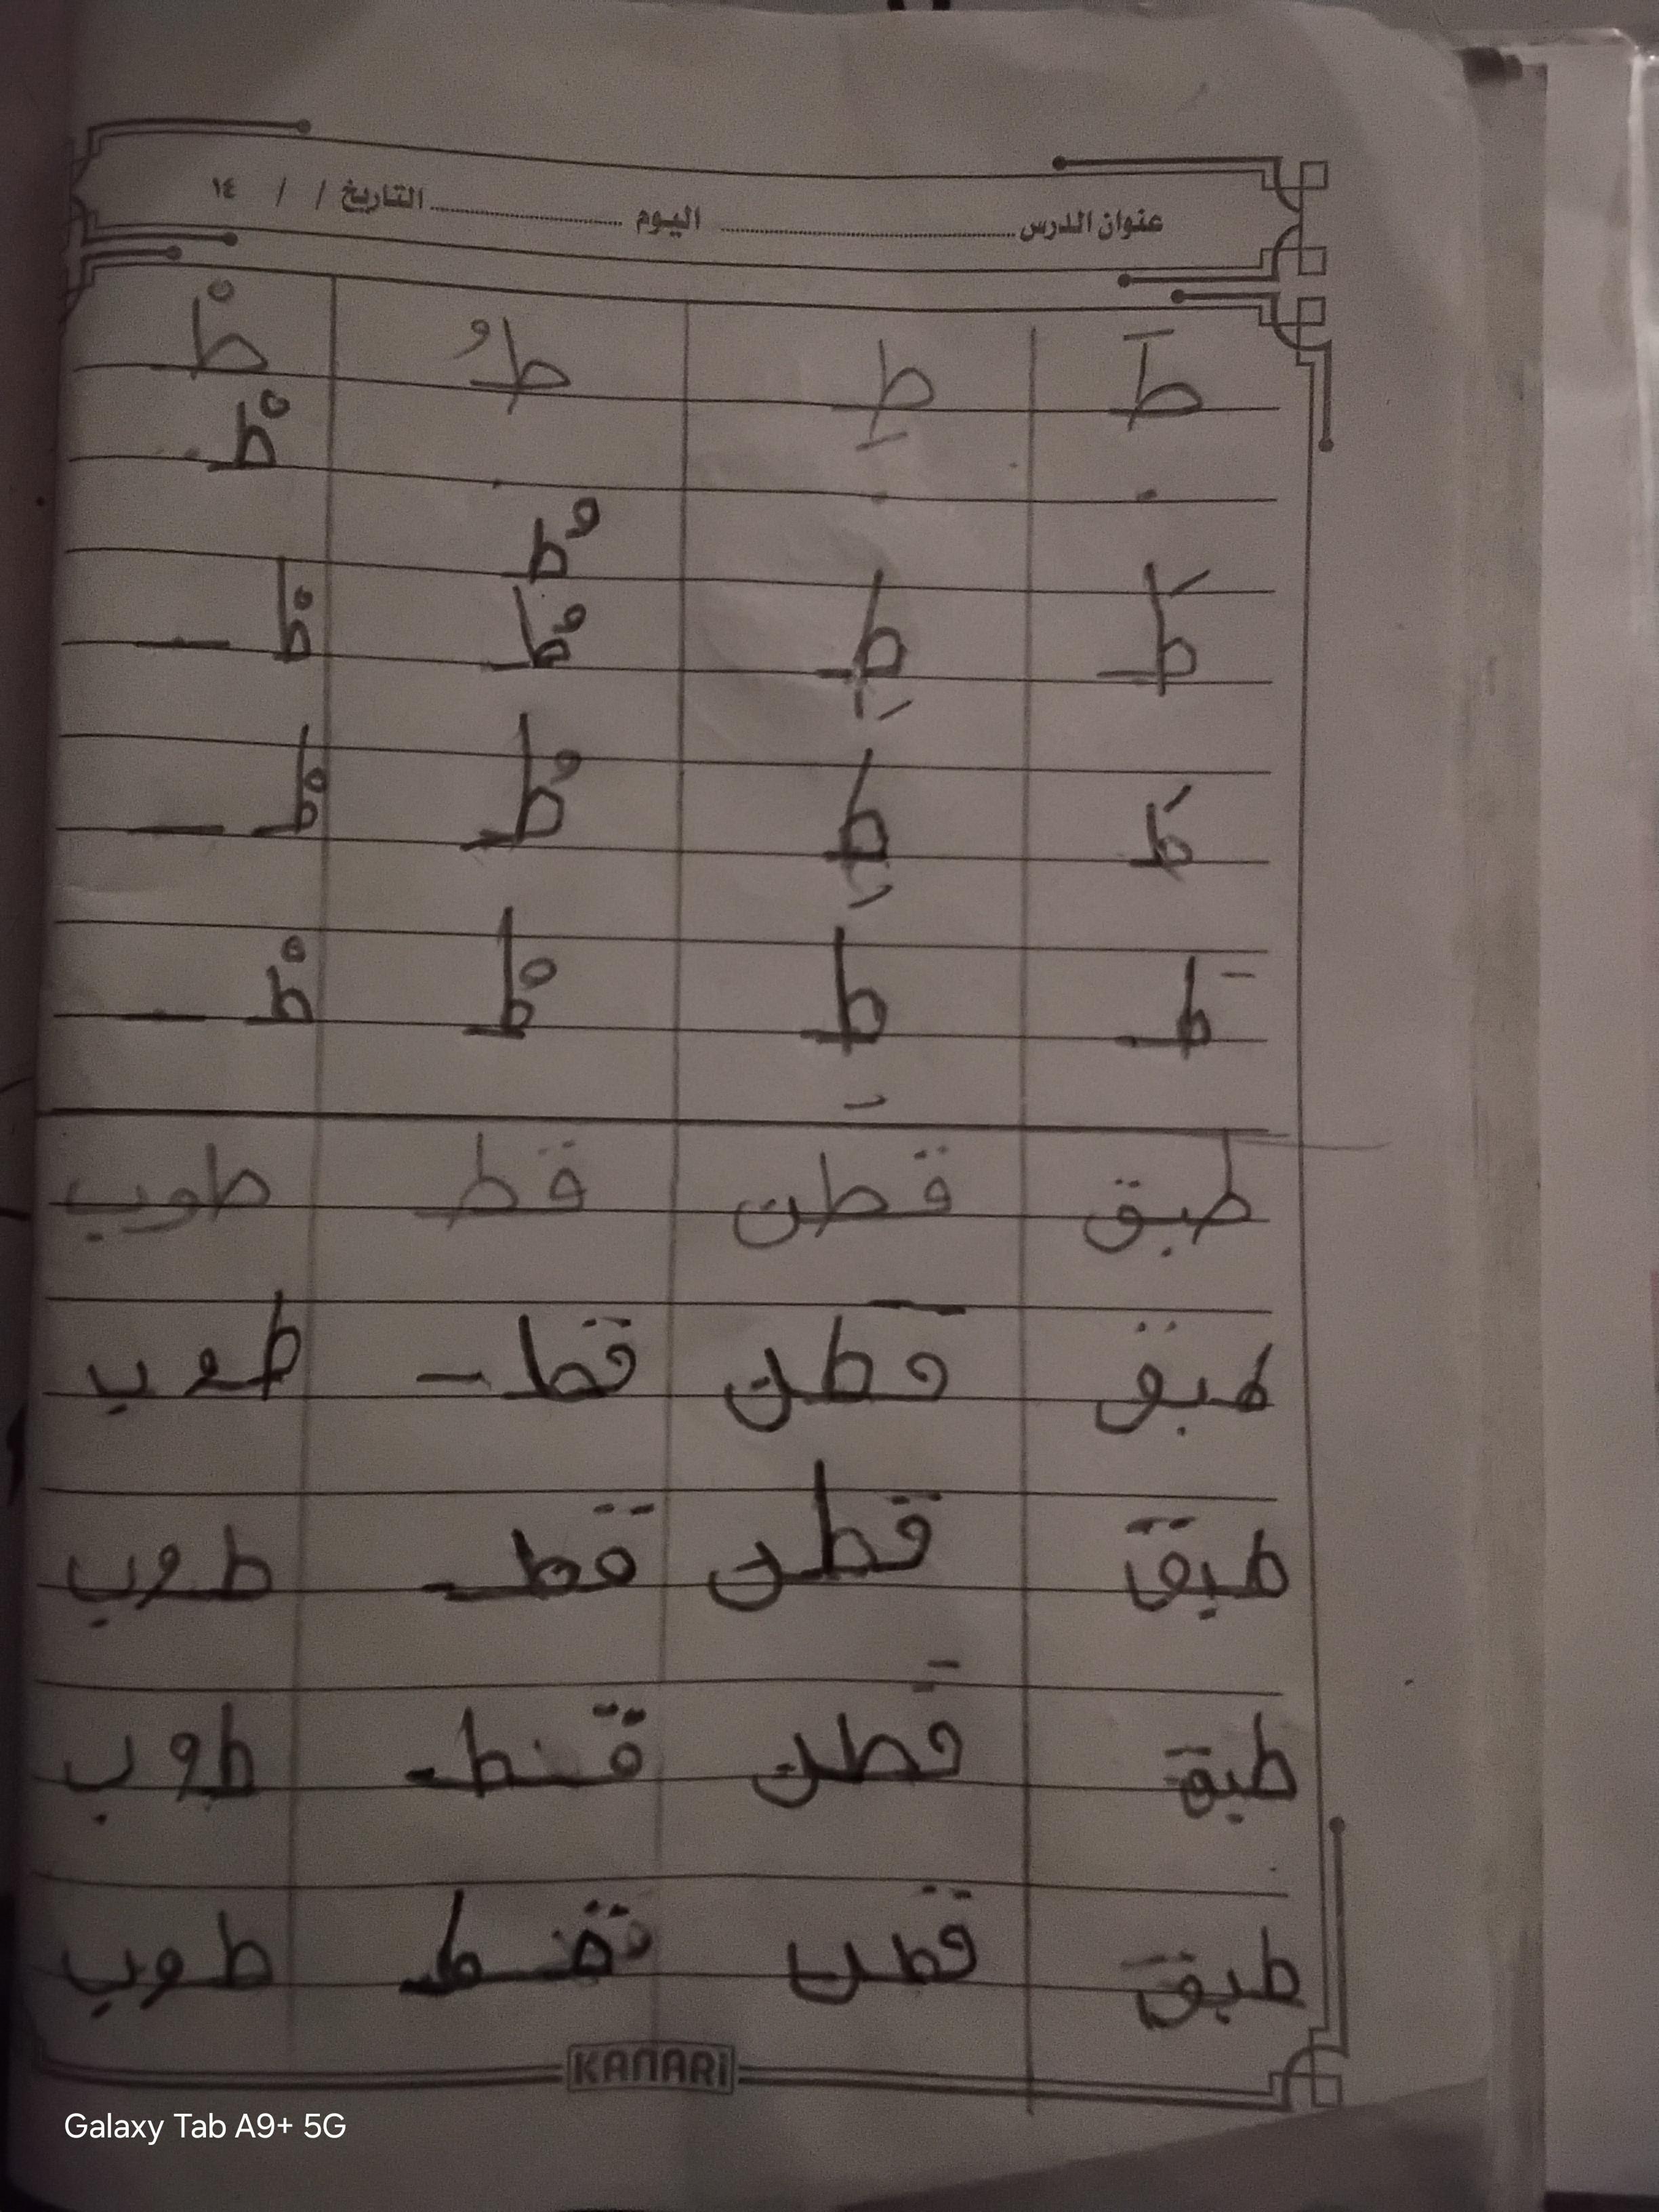 عنوان الدرس ........ اليوم ........ التاريخ / / ١٤
طَ طِ طُ طْ
طْ
طُ
طَ طِ طُ طْ
طَ طِ طُ طْ
طَ طِ طْ طْ
طبق قطن قط طوب
طبق قطن قط طوب
طبق قطن قط طوب
طبق قطن قنط طوب
طبق قطن طوب
KANARi
Galaxy Tab A9+ 5G